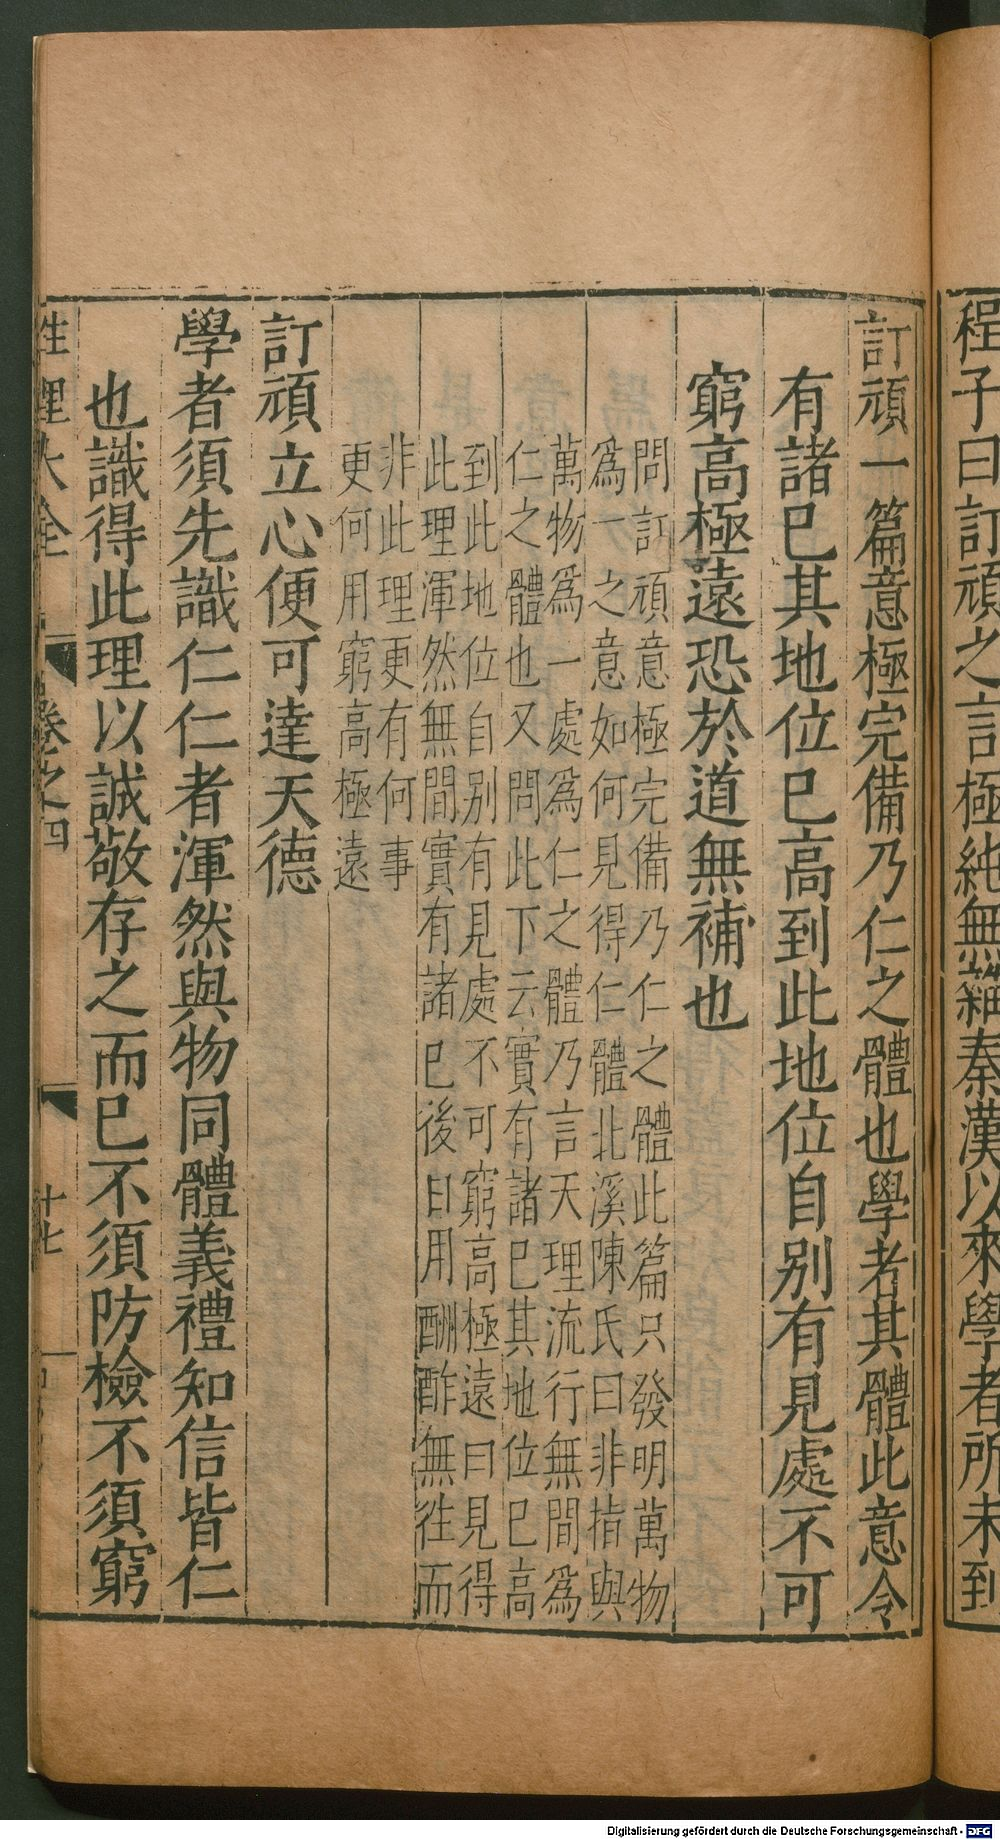 程子曰訂頑之言極純無雜秦漢以來學者所未到
訂頑一篇意極完備乃仁之體也學者其體此意令
有諸已其地位已高到此地位自别有見處不可
窮高極遠恐於道無補也
問訂頑意極完備乃仁之體此篇只發明萬物
爲一之意如何見得仁體北溪陳氏曰非指與
萬物爲一處爲仁之體乃言天理流行無間爲
仁之體也又問此下云實有諸已其地位已高
到此地位自别有見處不可窮高極遠曰見得
此理渾然無間實有諸已後日用酬酢無往而
非此理更有何事
更何用窮高極遠
訂頑立心便可達天德
學者須先識仁仁者渾然與物同體義禮知信皆仁
也識得此理以誠敬存之而已不須防檢不須窮
性理大全 卷之四 十七
Digitalisierung gefördert durch die Deutsche Forschungsgemeinschaft - DFG